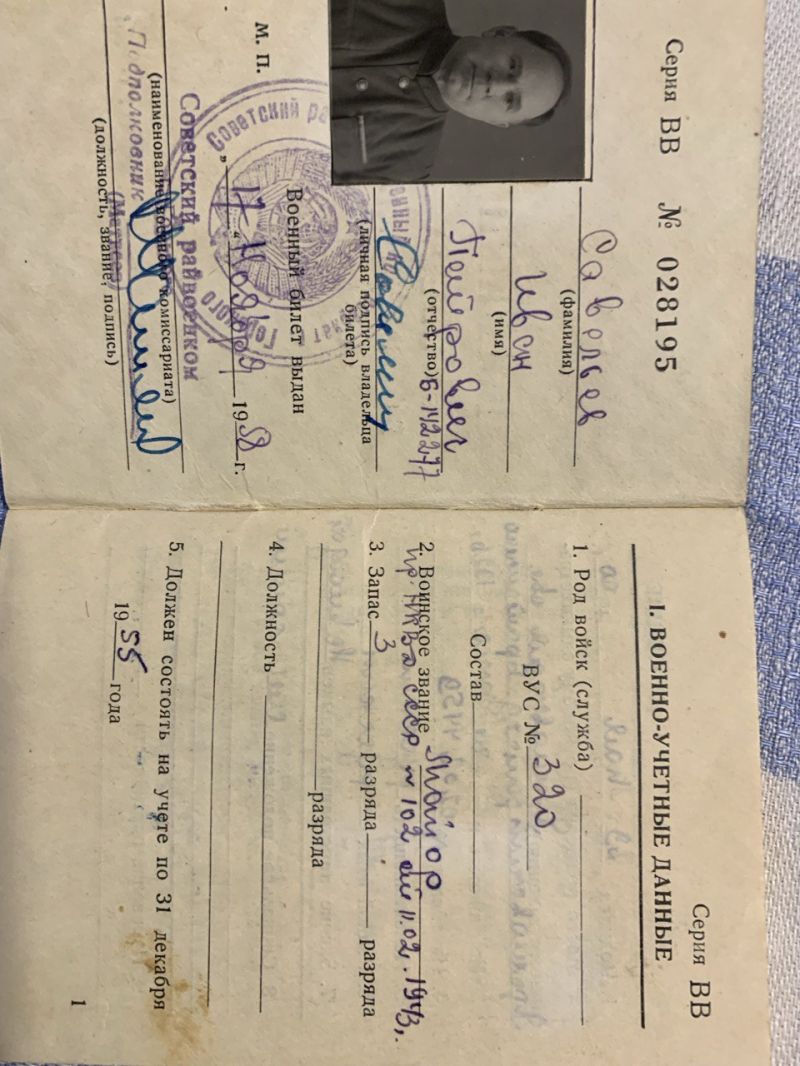 Серия ВВ № 028195
Савельев
(фамилия)
Иван
(имя)
Петрович
(отчество) Б-142277
(личная подпись владельца
билета)
Военный билет выдан
М. П.
„17“ Ноября 1958 г.
Советский райвоенком
(наименование военного комиссариата)
Подполковник
(должность, звание, подпись)
Серия ВВ
I. ВОЕННО-УЧЕТНЫЕ ДАННЫЕ
1. Род войск (служба)
ВУС № 320
Состав
2. Воинское звание Майор
пр. НКВД СССР № 102 от 11.02.1943г.
3. Запас 3 разряда разряда
разряда
4. Должность
5. Должен состоять на учете по 31 декабря
1955 года
1